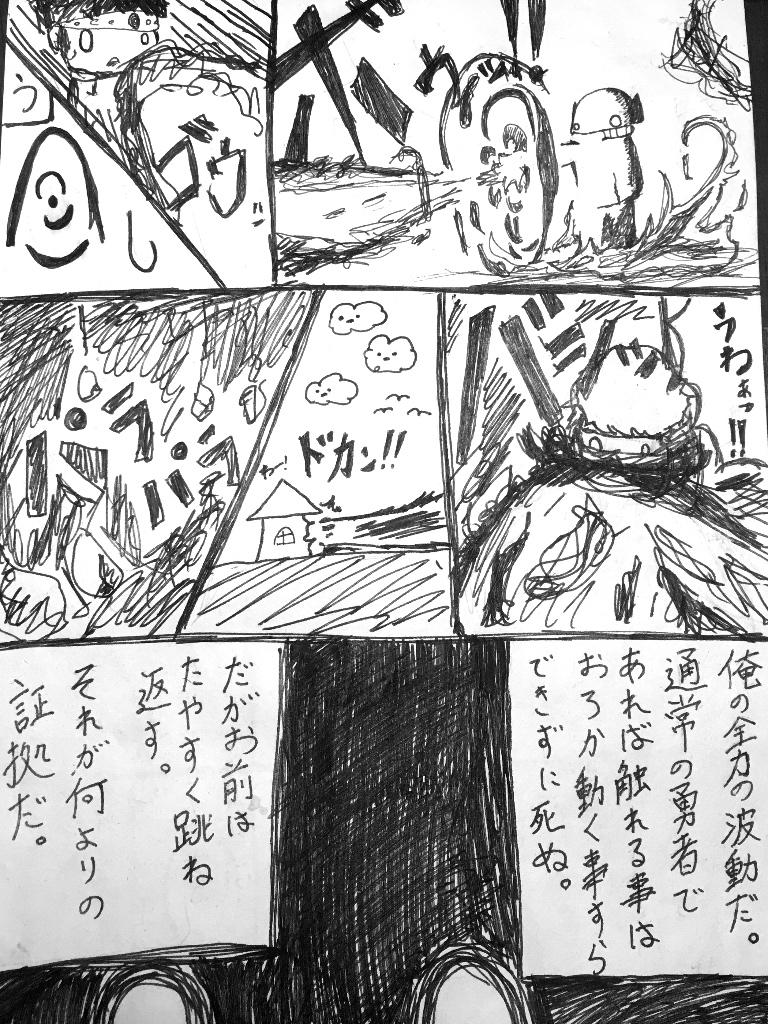 うわぁっ!!
ドカン!!
俺の全力の波動だ。
通常の勇者で
あれば触れる事は
おろか動く事すら
できずに死ぬ。
だがお前は
たやすく跳ね
返す。
それが何よりの
証拠だ。